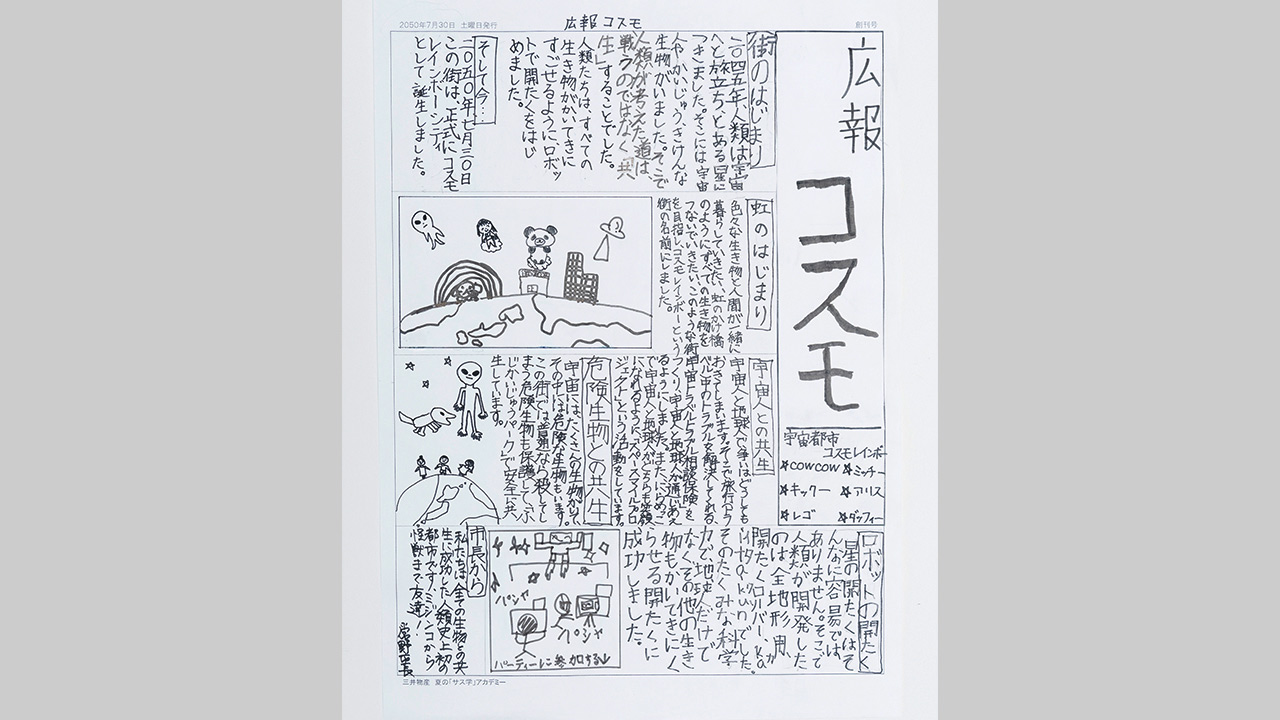 2050年7月30日 土曜日発行
広報 コスモ
創刊号
広報
コスモ
宇宙都市
コスモレインボー
☆COWCOW ☆ミッチー
☆キックー ☆アリス
☆レゴ ☆ダッフィー
街のはじまり
二〇四五年、人類は宇宙
へと旅立ち、とある星に
つきました。そこには宇宙
人やかいじゅう、きけんな
生物がいました。そこで
人類が考えた道は、
戦うのではなく「共
生」することでした。
人類たちは、すべての
生き物がかいてきに
すごせるように、ロボッ
トで開たくをはじ
めました。
そして今…
二〇五〇年七月三〇日
この街は、正式にコスモ
レインボーシティ
として誕生しました。
虹のはじまり
色々な生き物と人間が一緒に
暮らしていきたい、虹のかけ橋
のようにすべての生き物を
つないでいきたい、このような街
を目指し、コスモレインボーという
街の名前にしました。
宇宙人との共生
宇宙人と地球人で争いはどうしても
おきてしまいます。そこで旅行(トラ
ベル)中のトラブルを解決してくれる
宇宙トラベルトラブル相談保険を
つくり、宇宙人と地球人が通じあえ
るようにしました。またにらめっこ
で宇宙人と地球人がどちらも笑顔
になれるように「スペーススマイルプロ
ジェクト」という活動をしています。
危険生物との共生
宇宙には、たくさんの生物がいて、
その中には危険な生物もいます。
この街では普通なら殺してし
まう危険生物も保護して、「ふ
じかいじゅうパーク」で安全に共
生しています。
ロボットの開たく
星の開たくはそ
んなに容易では
ありません。そこで
人類が開発した
のは全地形用、
開たくローバー、
でした。
そのたくみな科学
力で、地球人だけで
なくその他の生き
物もかいてきにく
らせる開たくに
成功しました。
パシャ
パシャ
パーティーに参加する↓
市長から
私たちは、全ての生物との共
生に成功した人類史上初の
都市です!ミジンコから
怪獣まで友達!
三井物産 夏の「サス学」アカデミー